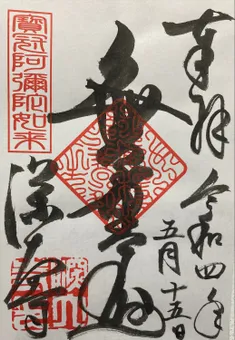 奉拝
令和四年
五月十五日
無量壽
寳冠阿彌陀如来
深大寺